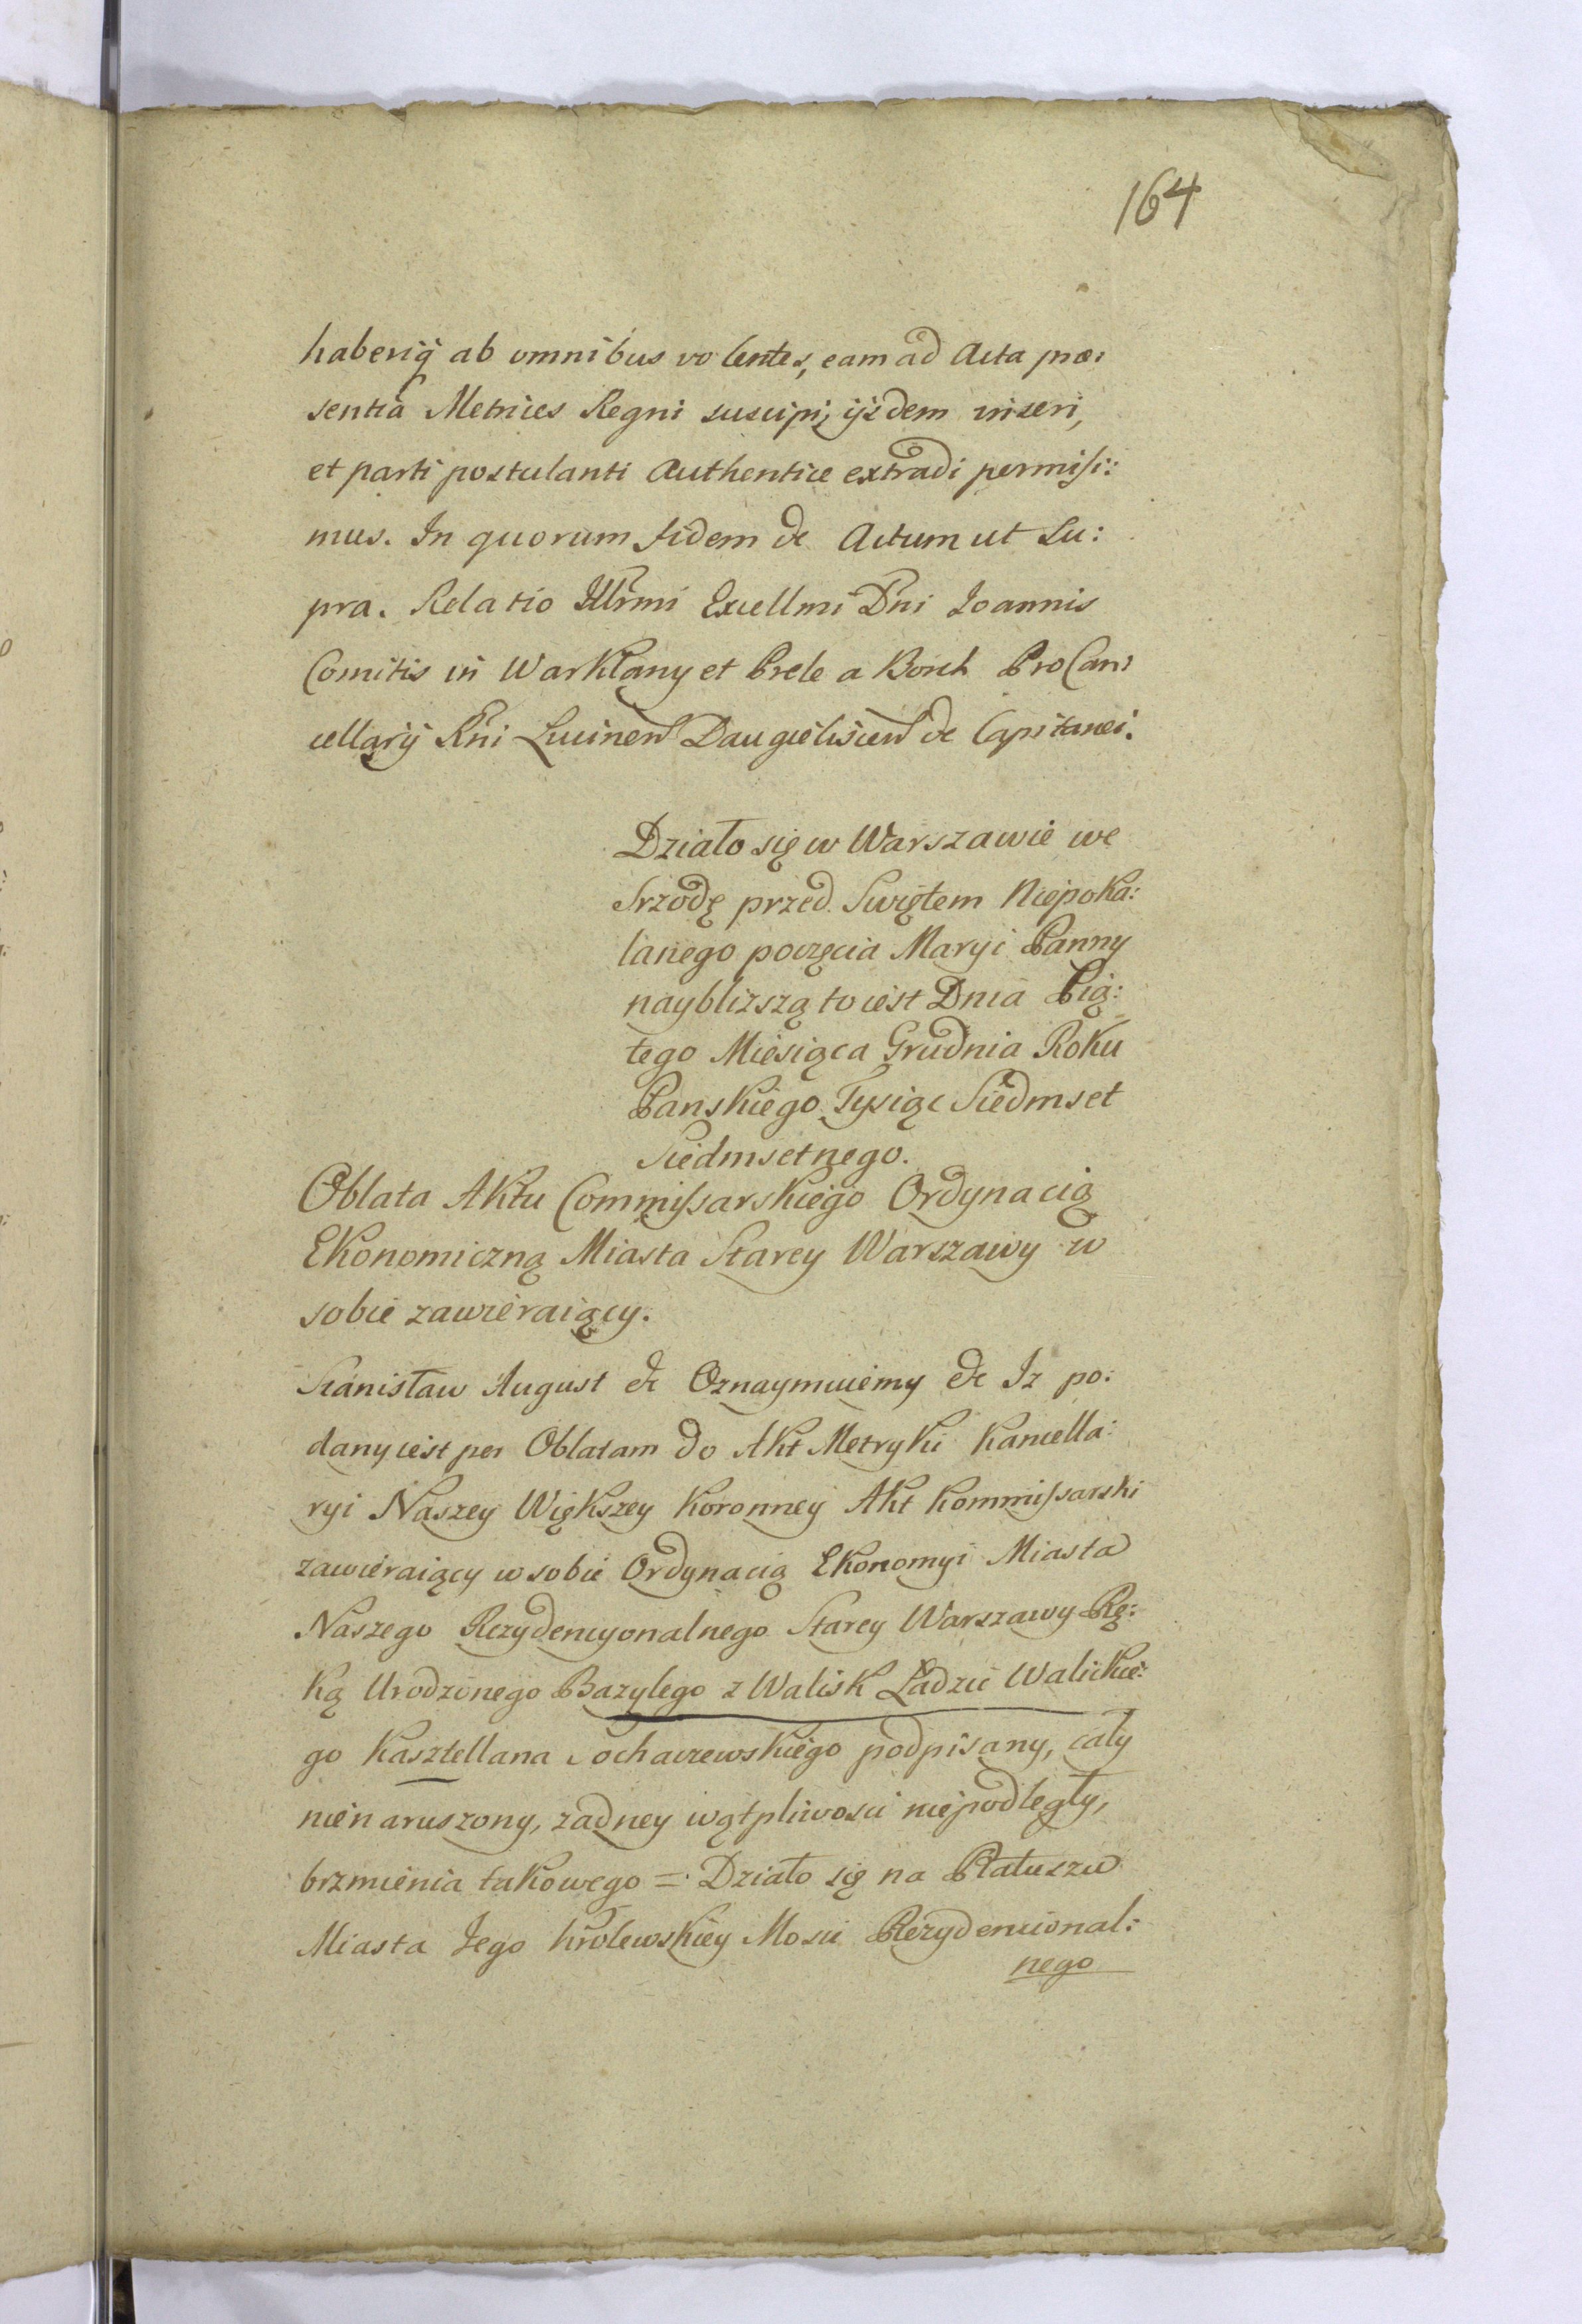 164
haberiq́ ab omnibus volentes, eam ad Acta præ:
sentia Metrices Regni suscipi, ijsdem inseri,
et parti postulanti Authentice extradi permisi:
mus. In quorum fidem &c Actum ut Su:
pra. Relatio Illrmi Excellmi Dni Joannis
Comitis in Warklany et Prele a Borch ProCan:
cellarij Rni Lucinen Daugieliscen &c Capitanei.
Działo się w Warszawie we
Srzodę przed Swiętem Niepoka:
lanego poczęcia Maryi Panny
naybliższą to iest Dnia Pią:
tego Miesiąca Grudnia Roku
Panskiego Tysiąc Siedmset
Siedmsetnego.
Oblata Aktu Commissarskiego Ordynacią
Ekonomiczną Miasta Starey Warszawy w
sobie zawieraiący.
Stanisław August &c Oznaymuiemy &c Iz po:
dany iest per Oblatam do Akt Metryki Kancella:
ryi Naszey Większey Koronney Akt Kommissarski
zawieraiący w sobie Ordynacią Ekonomyi Miasta
Naszego Rezydencyonalnego Starey Warszawy Rę:
ką Urodzonego Bazylego z Walisk Ładzic Walickie:
go Kasztellana Sochaczewskiego podpisany, cały
nienaruszony, zadney wątpliwosci niepodległy,
brzmienia takowego = Działo się na Ratuszu
Miasta Jego Królewskiey Mosci Rezydencional:
nego